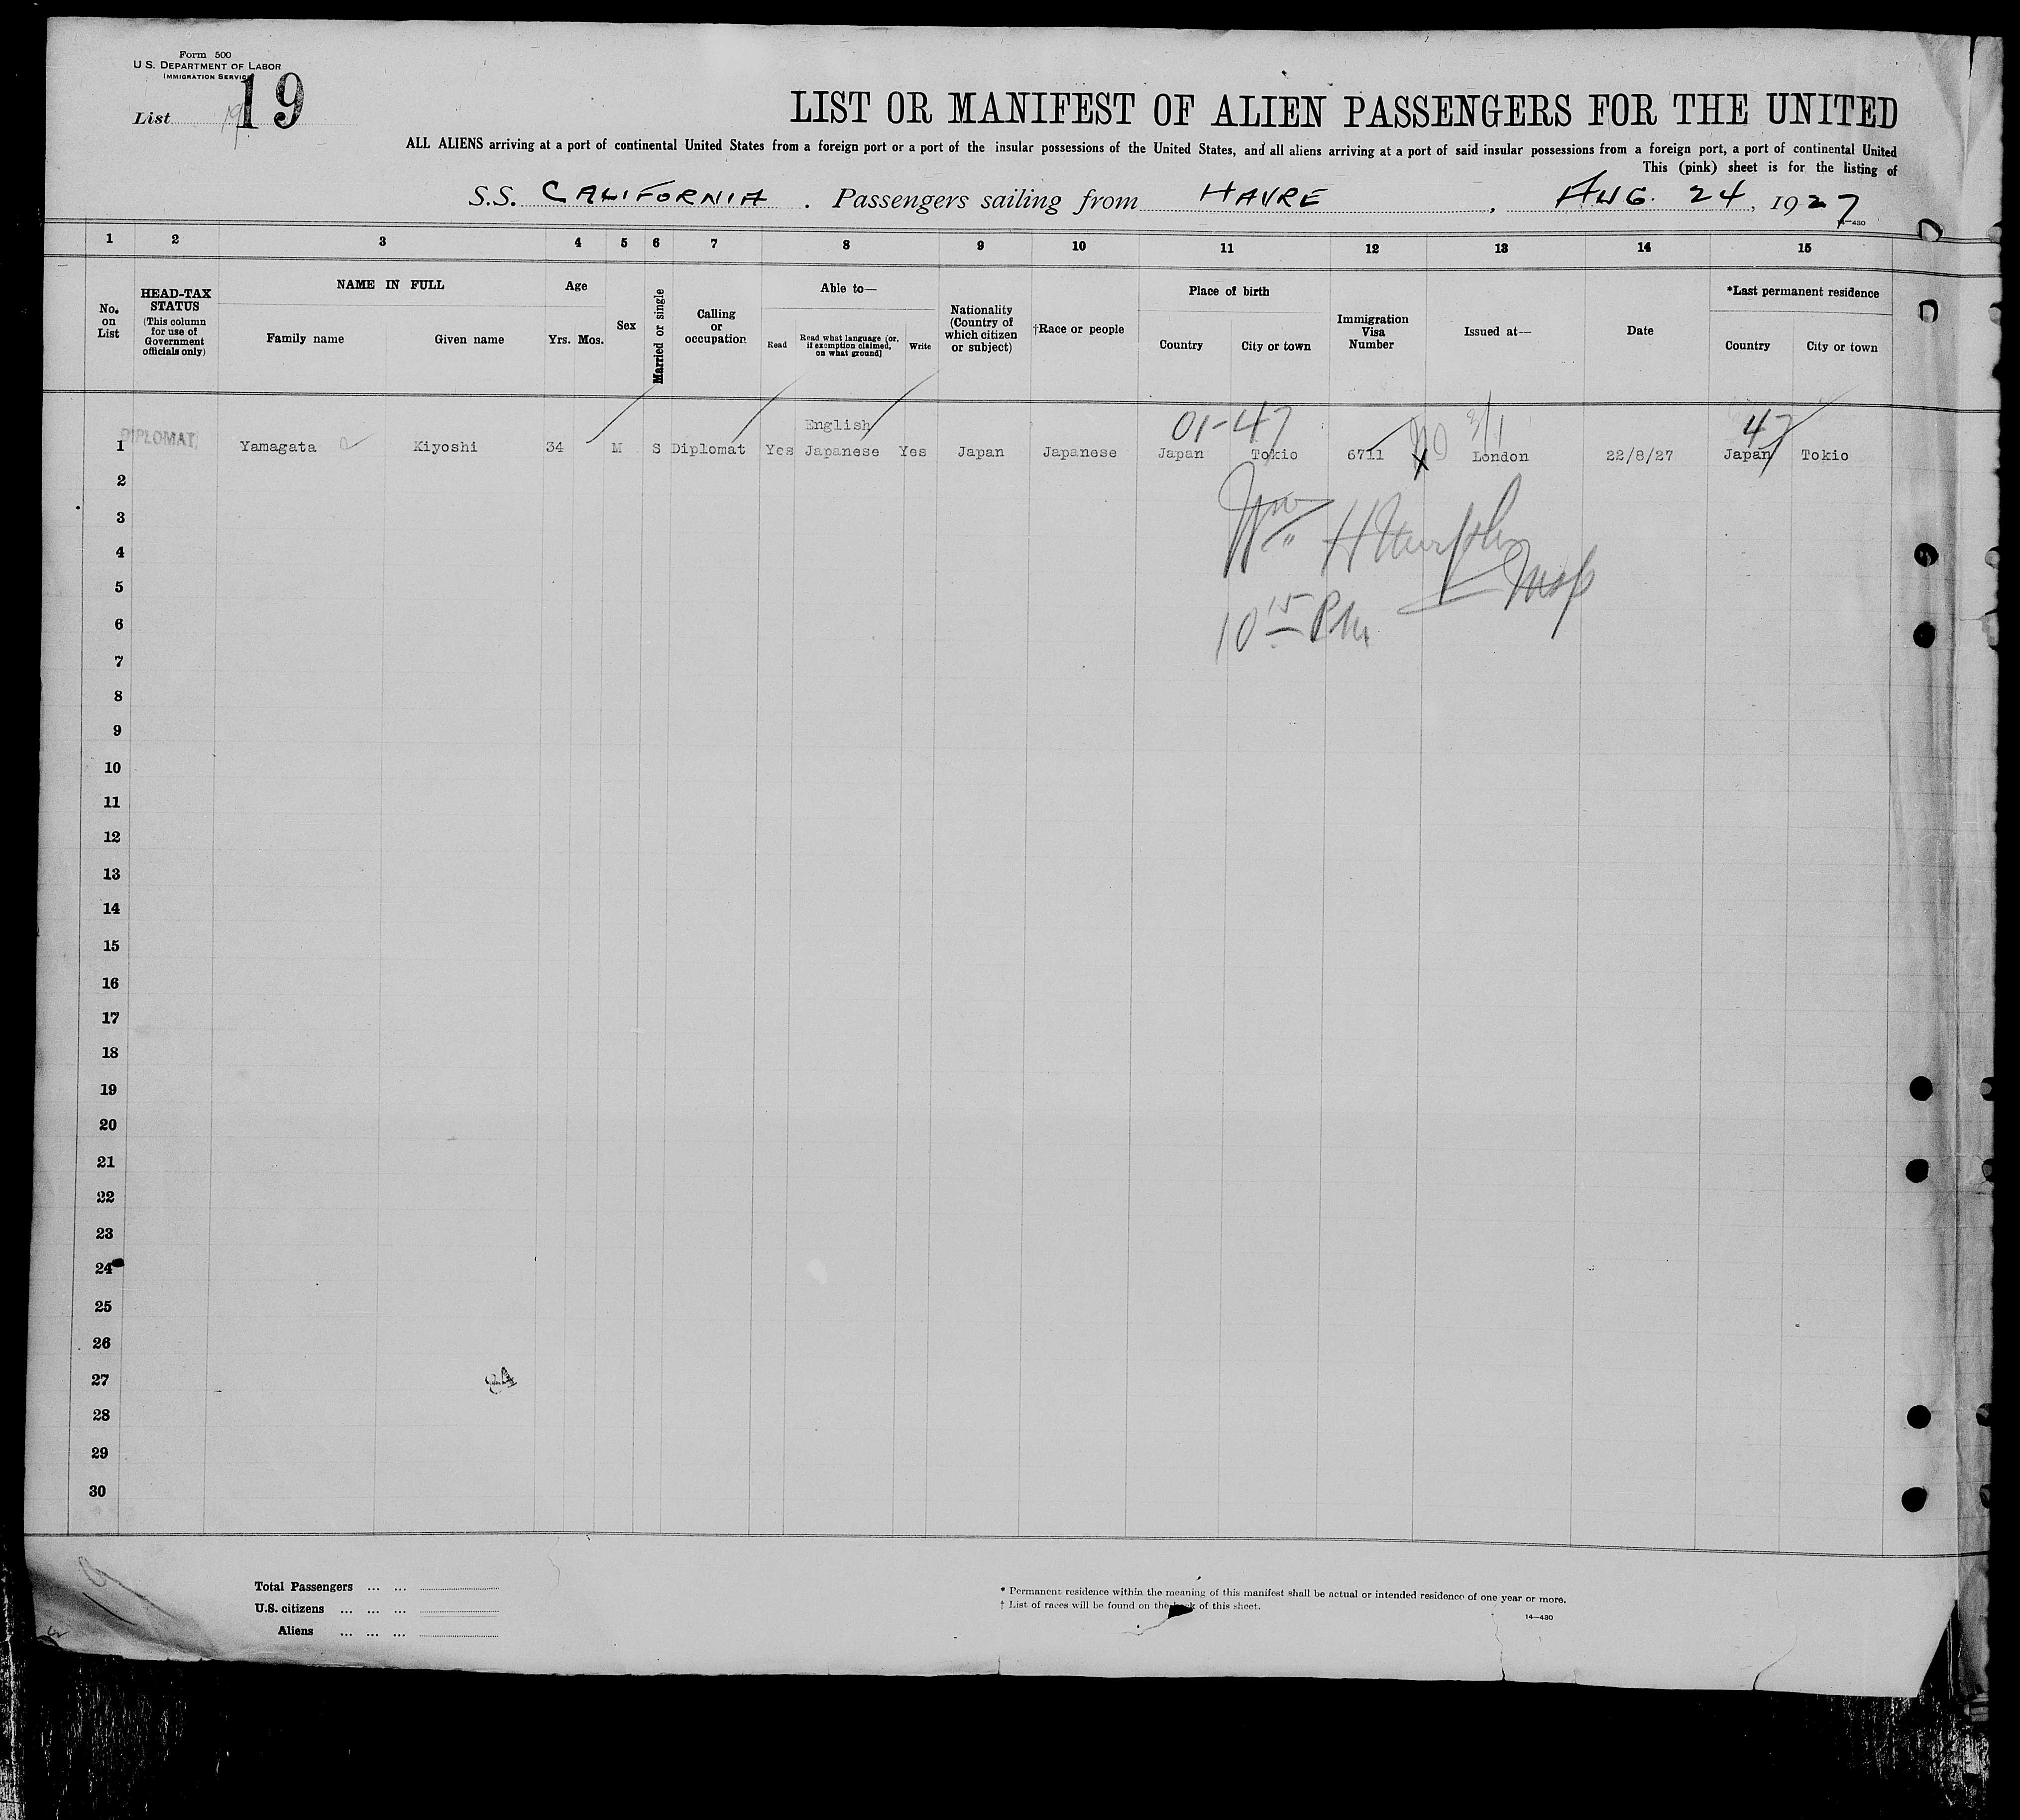 Form 500
U.S. DEPARTMENT OF LABOR
IMMIGRATION SERVICE
List 19
LIST OR MANIFEST OF ALIEN PASSENGERS FOR THE UNITED
ALL ALIENS arriving at a port of continental United States from a foreign port or a port of the insular possessions of the United States, and all aliens arriving at a port of said insular possessions from a foreign port, a port of continental United
This (pink) sheet is for the listing of
S.S. CALIFORNIA . Passengers sailing from HAVRE , AUG. 24, 1927
14—430
1 2 3 4 5 6 7 8 9 10 11 12 13 14 15
No. on List
HEAD-TAX STATUS (This column for use of Government officials only)
NAME IN FULL
Family name Given name
Age
Yrs. Mos.
Sex
Married or single
Calling or occupation
Able to—
Read
Read what language (or, if exemption claimed, on what ground)
Write
Nationality (Country of which citizen or subject)
†Race or people
Place of birth
Country City or town
Immigration Visa Number
Issued at—
Date
*Last permanent residence
Country City or town
01-47 47
English
1 DIPLOMAT Yamagata Kiyoshi 34 M S Diplomat Yes Japanese Yes Japan Japanese Japan Tokio 6711 X London 22/8/27 Japan Tokio
2
3
Wm H
4
5
6
10 15 PM
7
8
9
10
11
12
13
14
15
16
17
18
19
20
21
22
23
24
25
26
27
28
29
30
Total Passengers ... ...
U.S. citizens ... ... ...
Aliens ... ... ...
* Permanent residence within the meaning of this manifest shall be actual or intended residence of one year or more.
† List of races will be found on the back of this sheet.
14—430